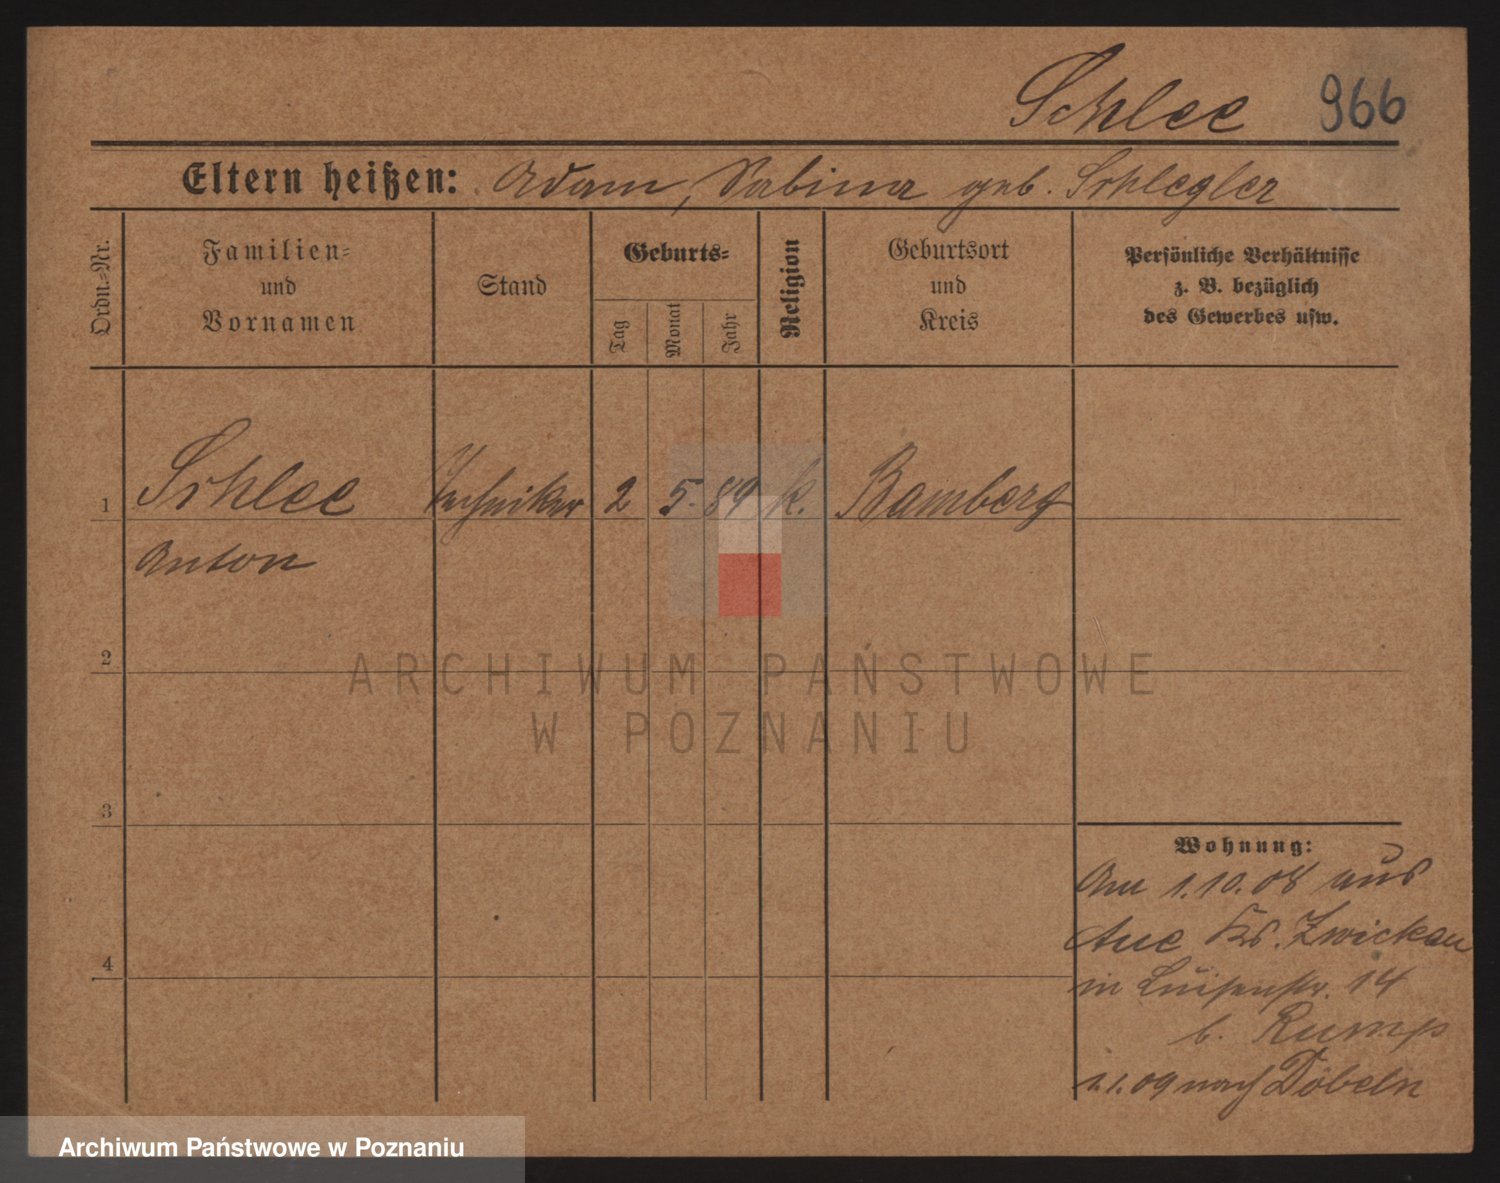 Schlee 966
Eltern heißen: Adam, Sabina geb. Schlegler
Ordn.-Nr.
Familien-
und
Vornamen
Stand
Geburts-
Tag
Monat
Jahr
Religion
Geburtsort
und
Kreis
Persönliche Verhältnisse
z. B. bezüglich
des Gewerbes usw.
1 Schlee Techniker 2 5. 89 k. Bamberg
Anton
2
3
4
Wohnung:
Am 1.10.08 aus
Aue Krs. Zwickau
in Luisenstr. 14
b. Rump
1.1.09 nach Döbeln
ARCHIWUM PAŃSTWOWE
W POZNANIU
Archiwum Państwowe w Poznaniu